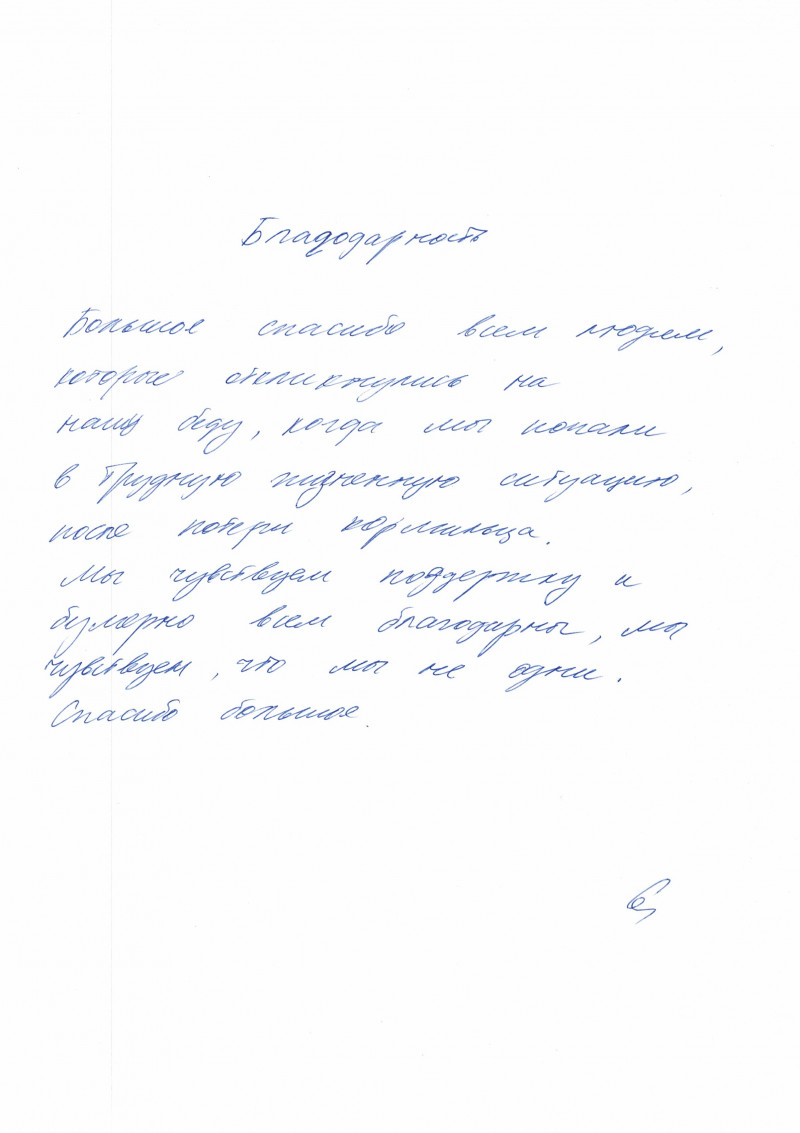 Благодарность
Большое спасибо всем людям,
которые откликнулись на
нашу беду, когда мы попали
в трудную жизненную ситуацию,
после потери кормильца.
Мы чувствуем поддержку и
безмерно всем благодарны, мы
чувствуем, что мы не одни.
Спасибо большое.